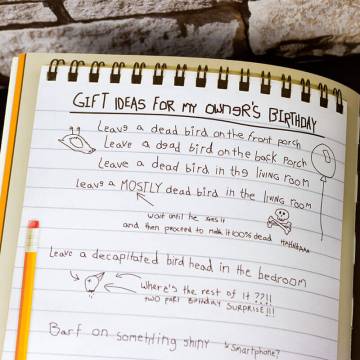 GIFT IDEAS FOR MY OWNER'S BIRTHDAY
Leave a dead bird on the front porch
Leave a dead bird on the back porch
Leave a dead bird in the LIVING ROOM
leave a MOSTLY dead bird in the LIVING ROOM
wait until he sees it
and then proceed to make it 100% dead
Leave a decapitated bird head in the bedroom
Where's the rest of it??!!
TWO PART BIRTHDAY SURPRISE!!!
Barf on something shiny
Smartphone?